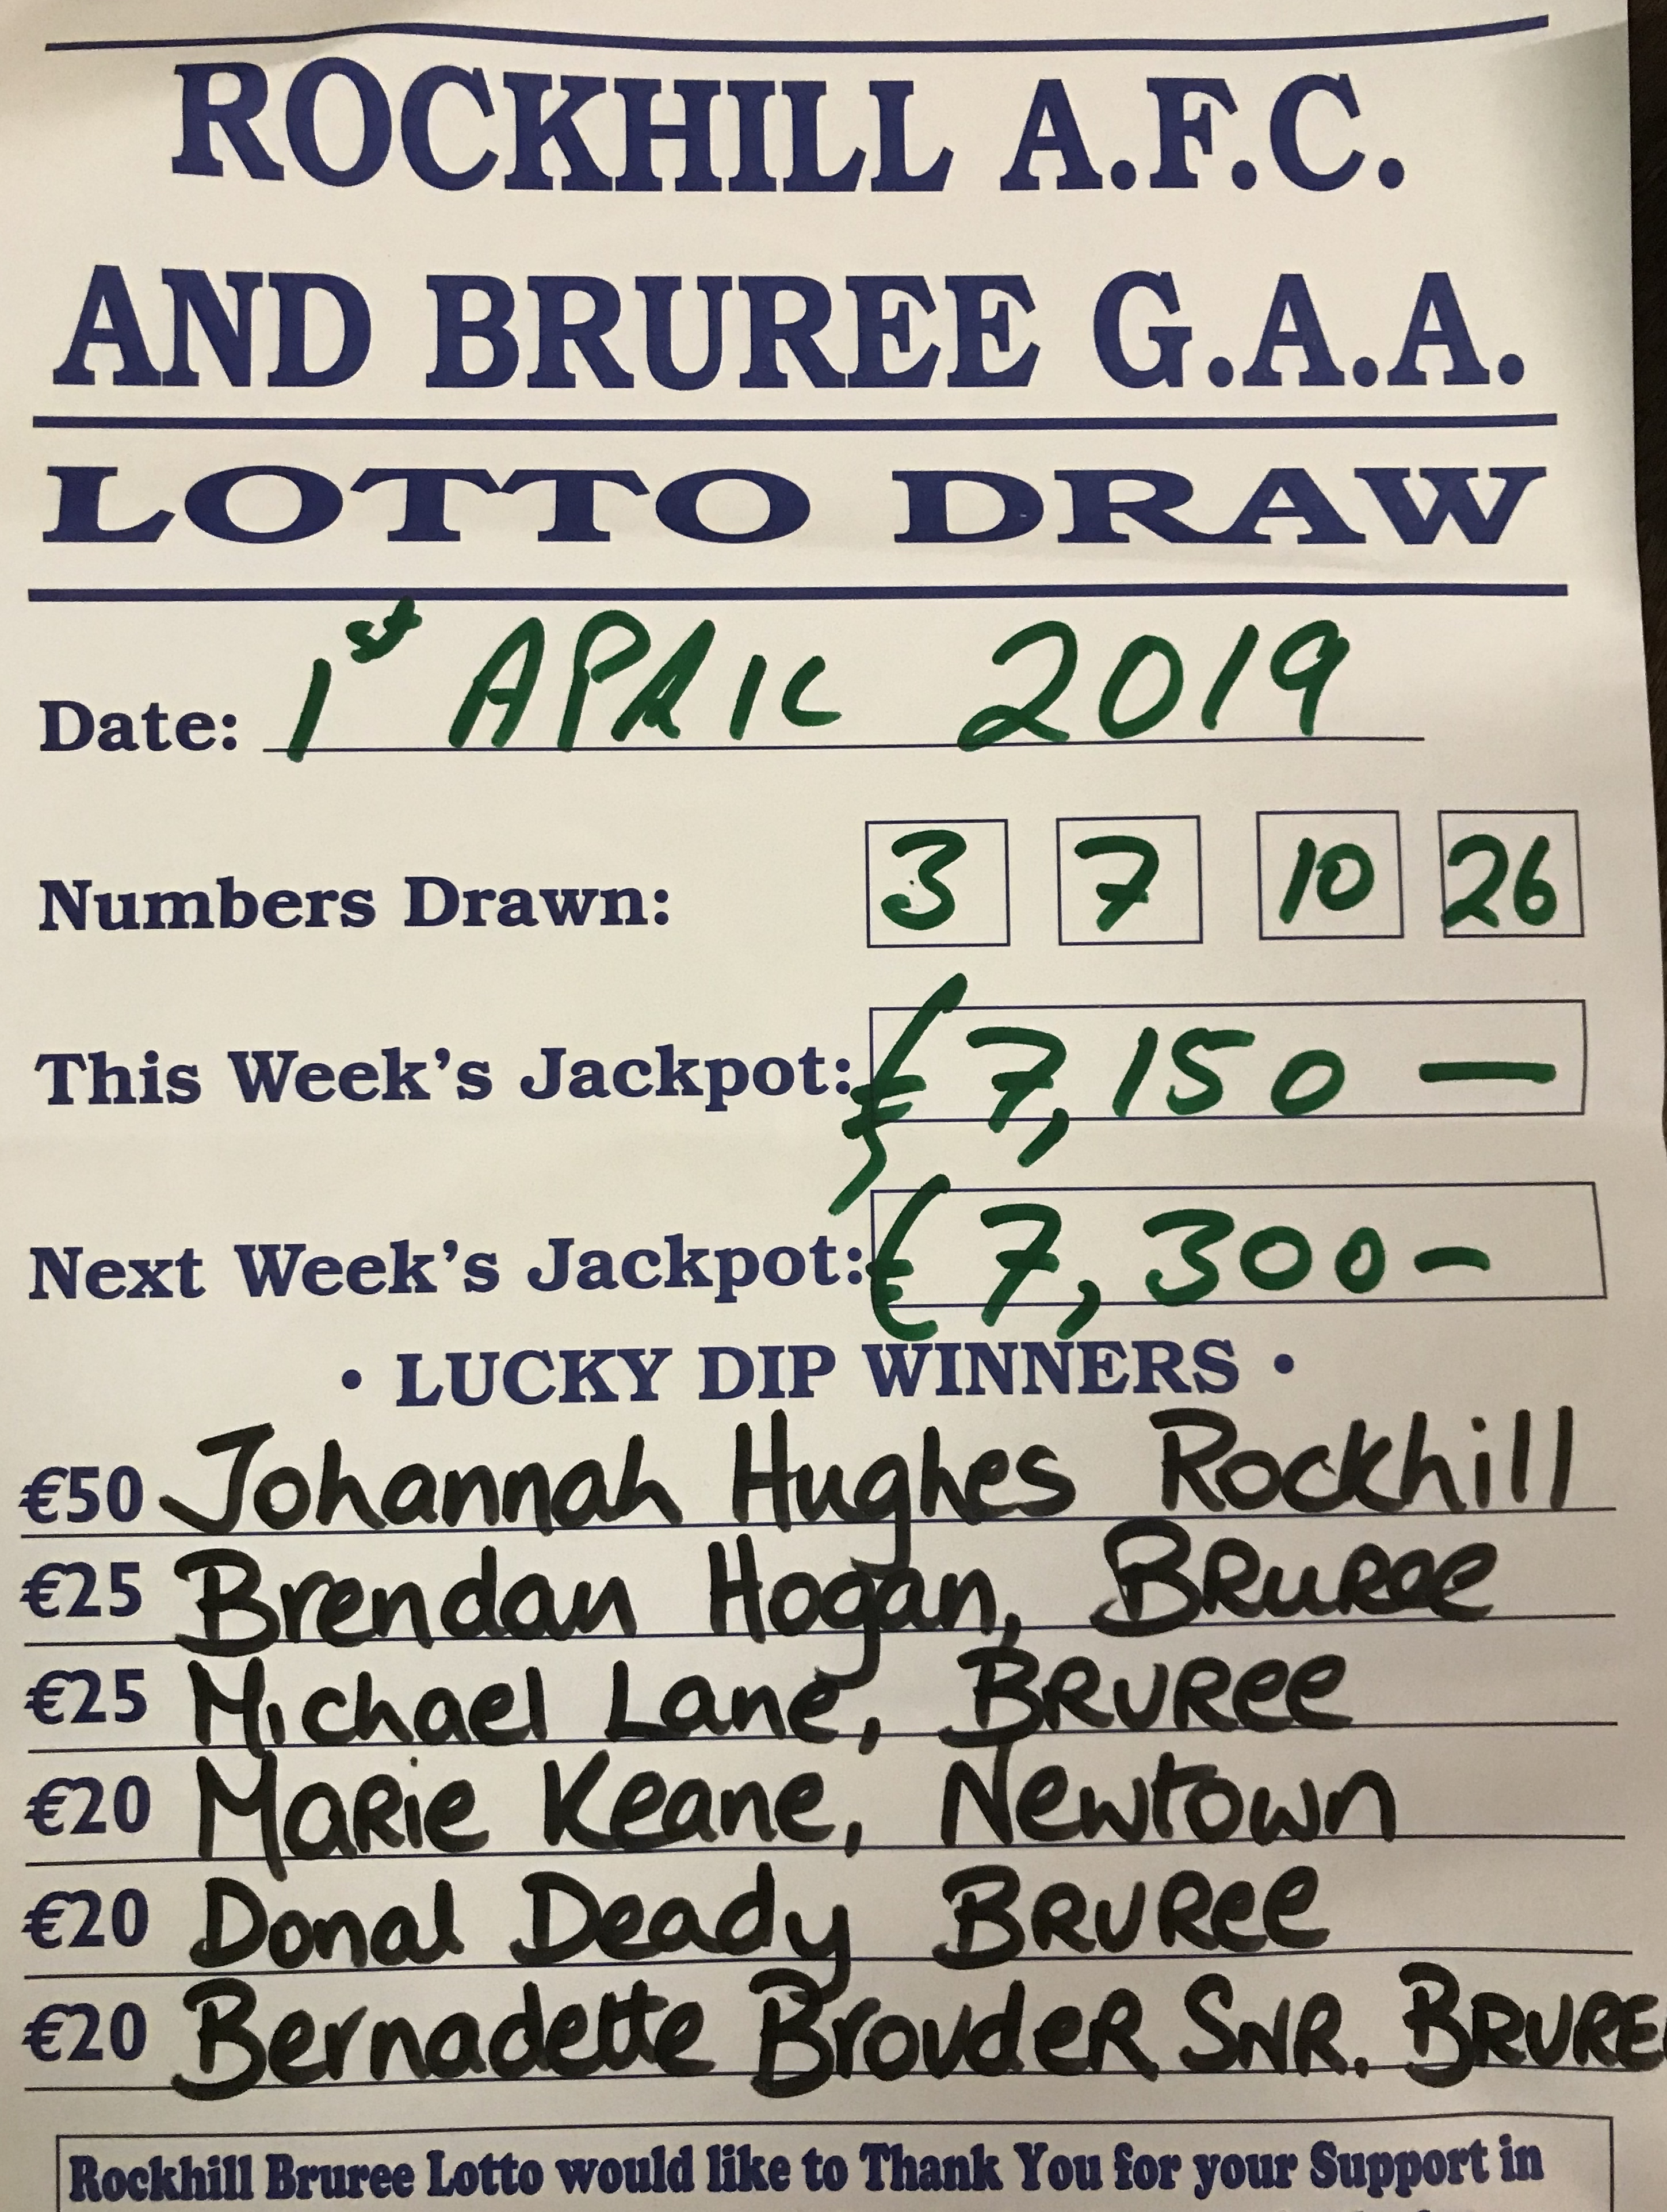 ROCKHILL A.F.C.
AND BRUREE G.A.A.
LOTTO DRAW
Date: 1st APRIL 2019
Numbers Drawn: 3 7 10 26
This Week's Jackpot: €7,150 —
Next Week's Jackpot: €7,300 -
• LUCKY DIP WINNERS •
€50 Johannah Hughes Rockhill
€25 Brendan Hogan, BRUREE
€25 Michael Lane, BRURee
€20 MaRie Keane, Newtown
€20 Donal Deady BRURee
€20 Bernadette BroudeR SNR. BRURE
Rockhill Bruree Lotto would like to Thank You for your Support in